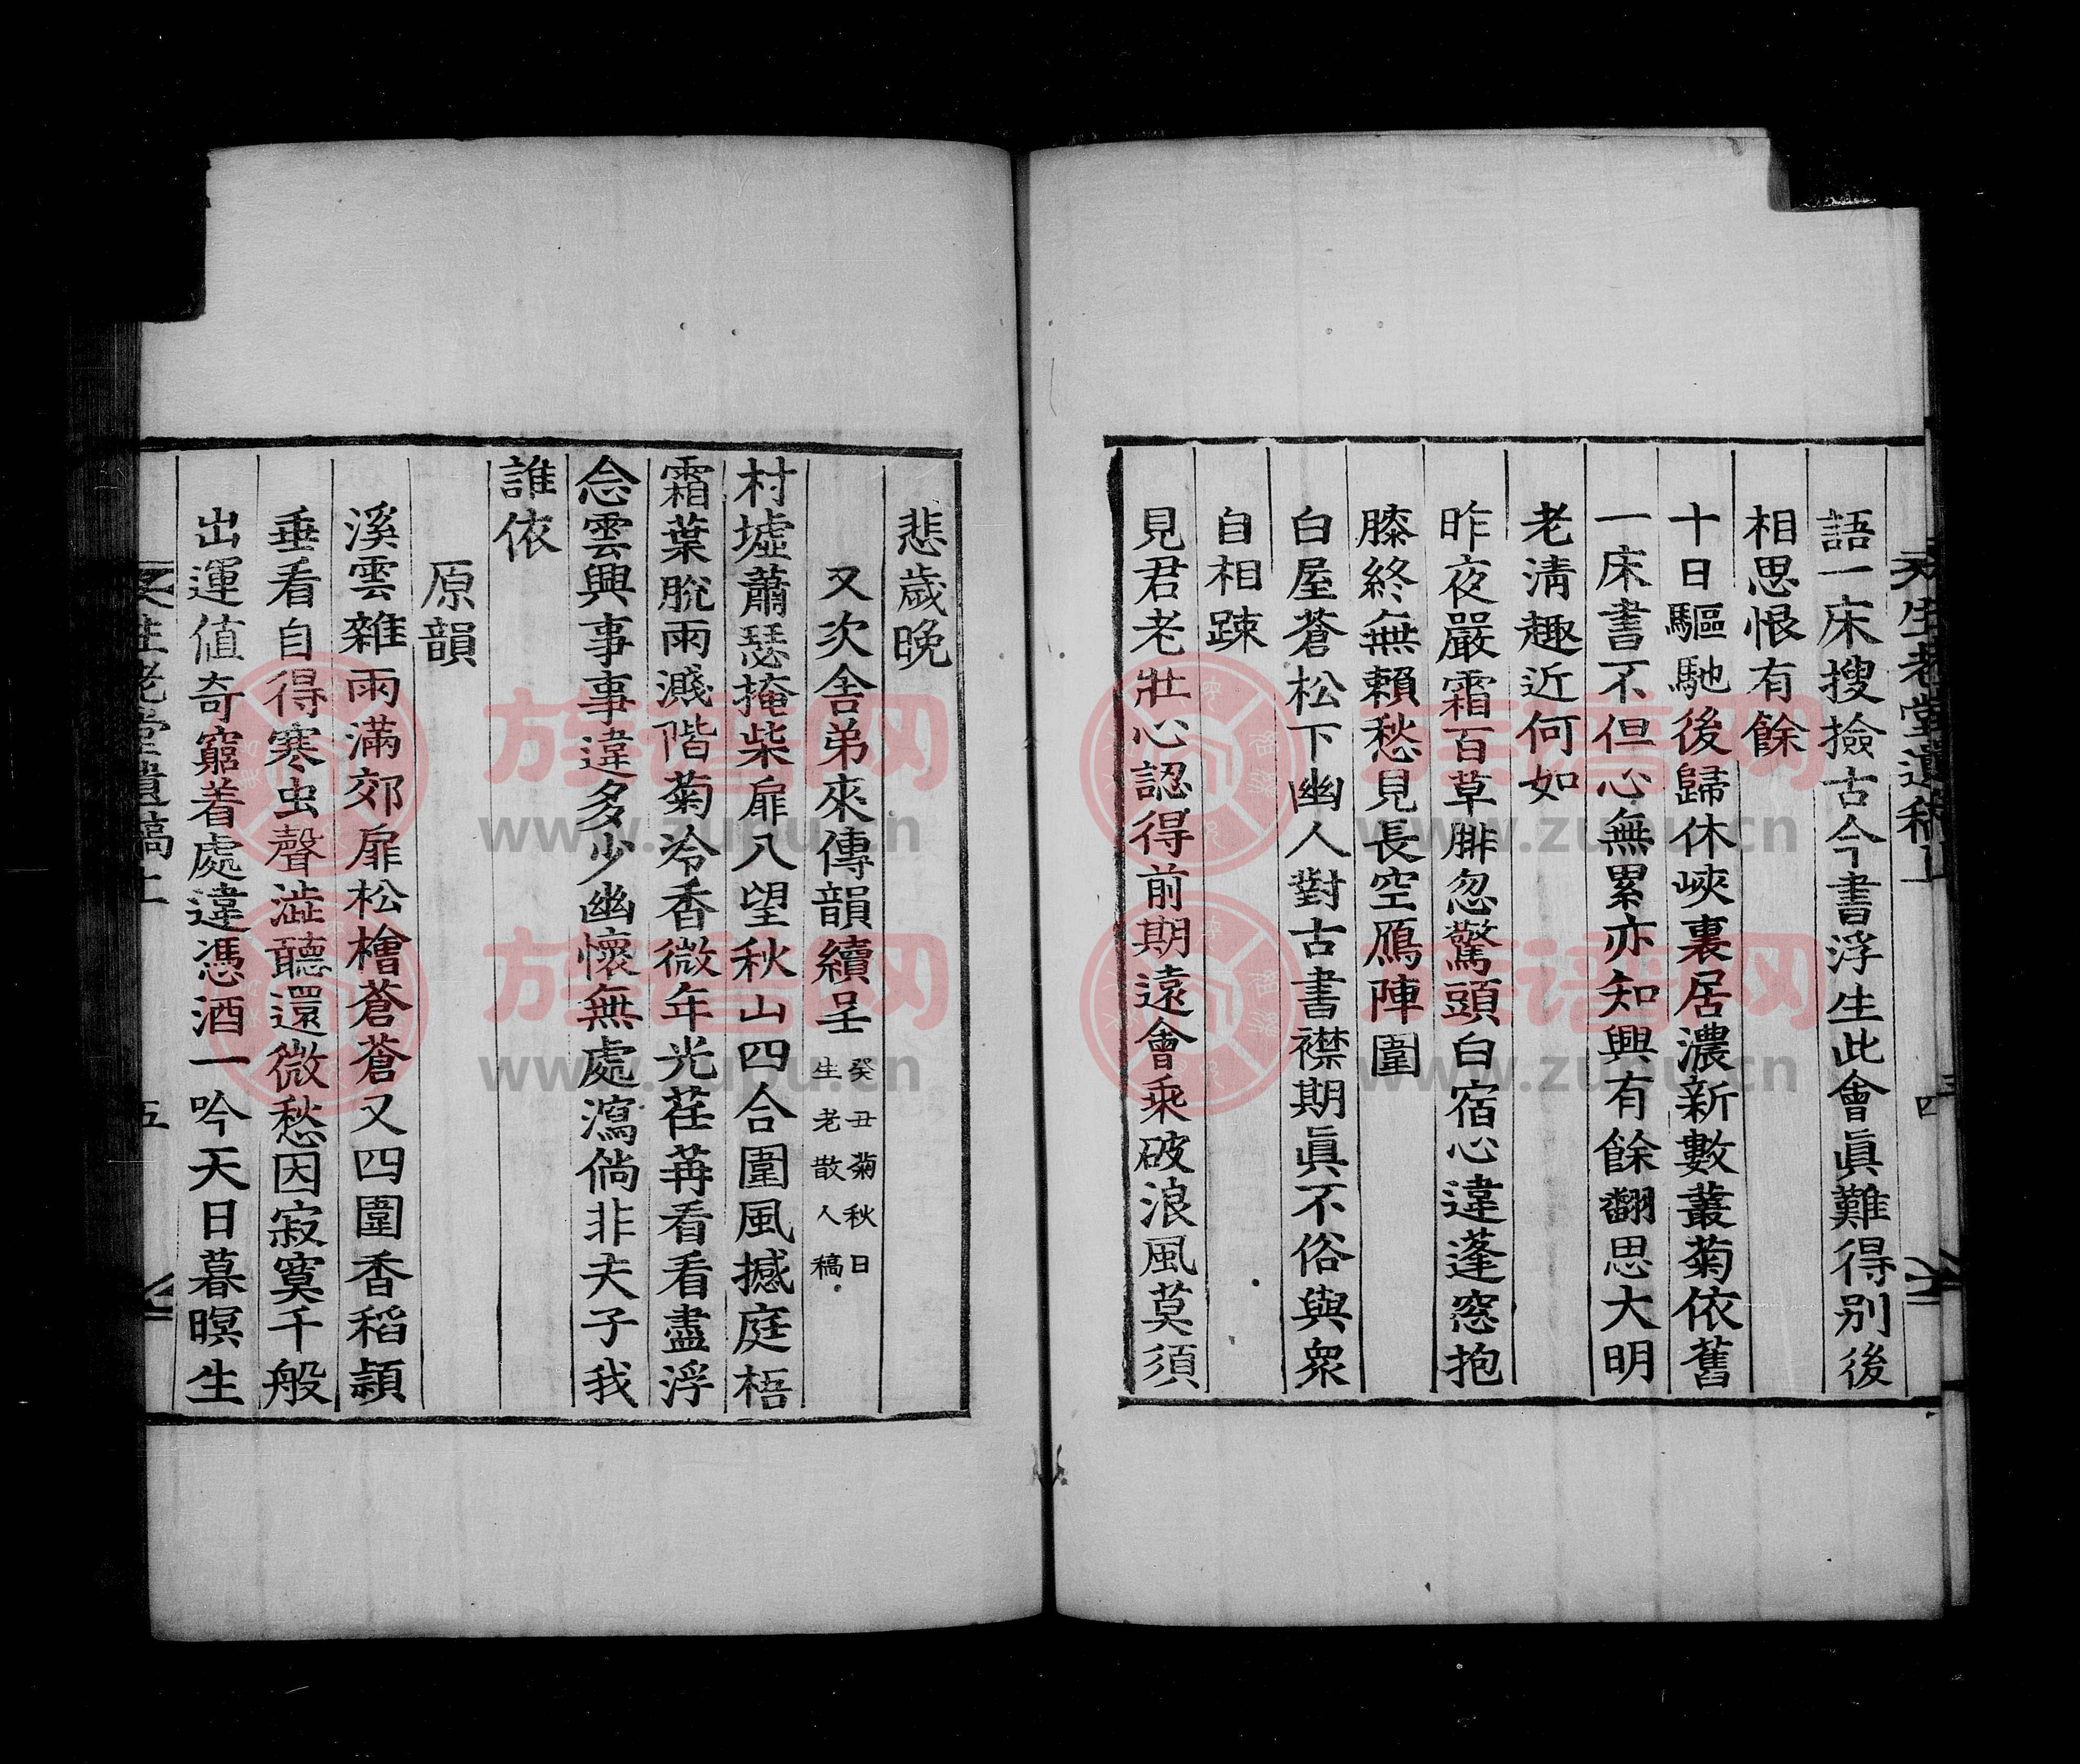 生老堂遺稿上
四
語一床搜撿古今書浮生此會眞難得別後
相思恨有餘
十日驅馳後歸休峽裏居濃新數叢菊依舊
一床書不但心無累亦知興有餘翻思大明
老淸趣近何如
昨夜嚴霜百草腓忽驚頭白宿心違蓬窓抱
膝終無賴愁見長空鴈陣圍
白屋蒼松下幽人對古書襟期眞不俗與衆
自相踈
見君老壯心認得前期遠會乘破浪風莫須
悲歲晩
又次舍弟來傳韻續呈癸丑菊秋日
生老散人稿
村墟蕭瑟掩柴扉八望秋山四合圍風撼庭梧
霜葉脫雨濺階菊冷香微年光荏苒看看盡浮
念雲興事事違多少幽懷無處瀉倘非夫子我
誰依
原韻
溪雲雜雨滿郊扉松檜蒼蒼又四圍香稻穎
垂看自得寒虫聲澁聽還微愁因寂寞千般
出運値奇窮着處違憑酒一吟天日暮暝生
生老堂遺稿上
五
族谱网
www.zupu.cn
族谱网
www.zupu.cn
族谱网
www.zupu.cn
族谱网
www.zupu.cn